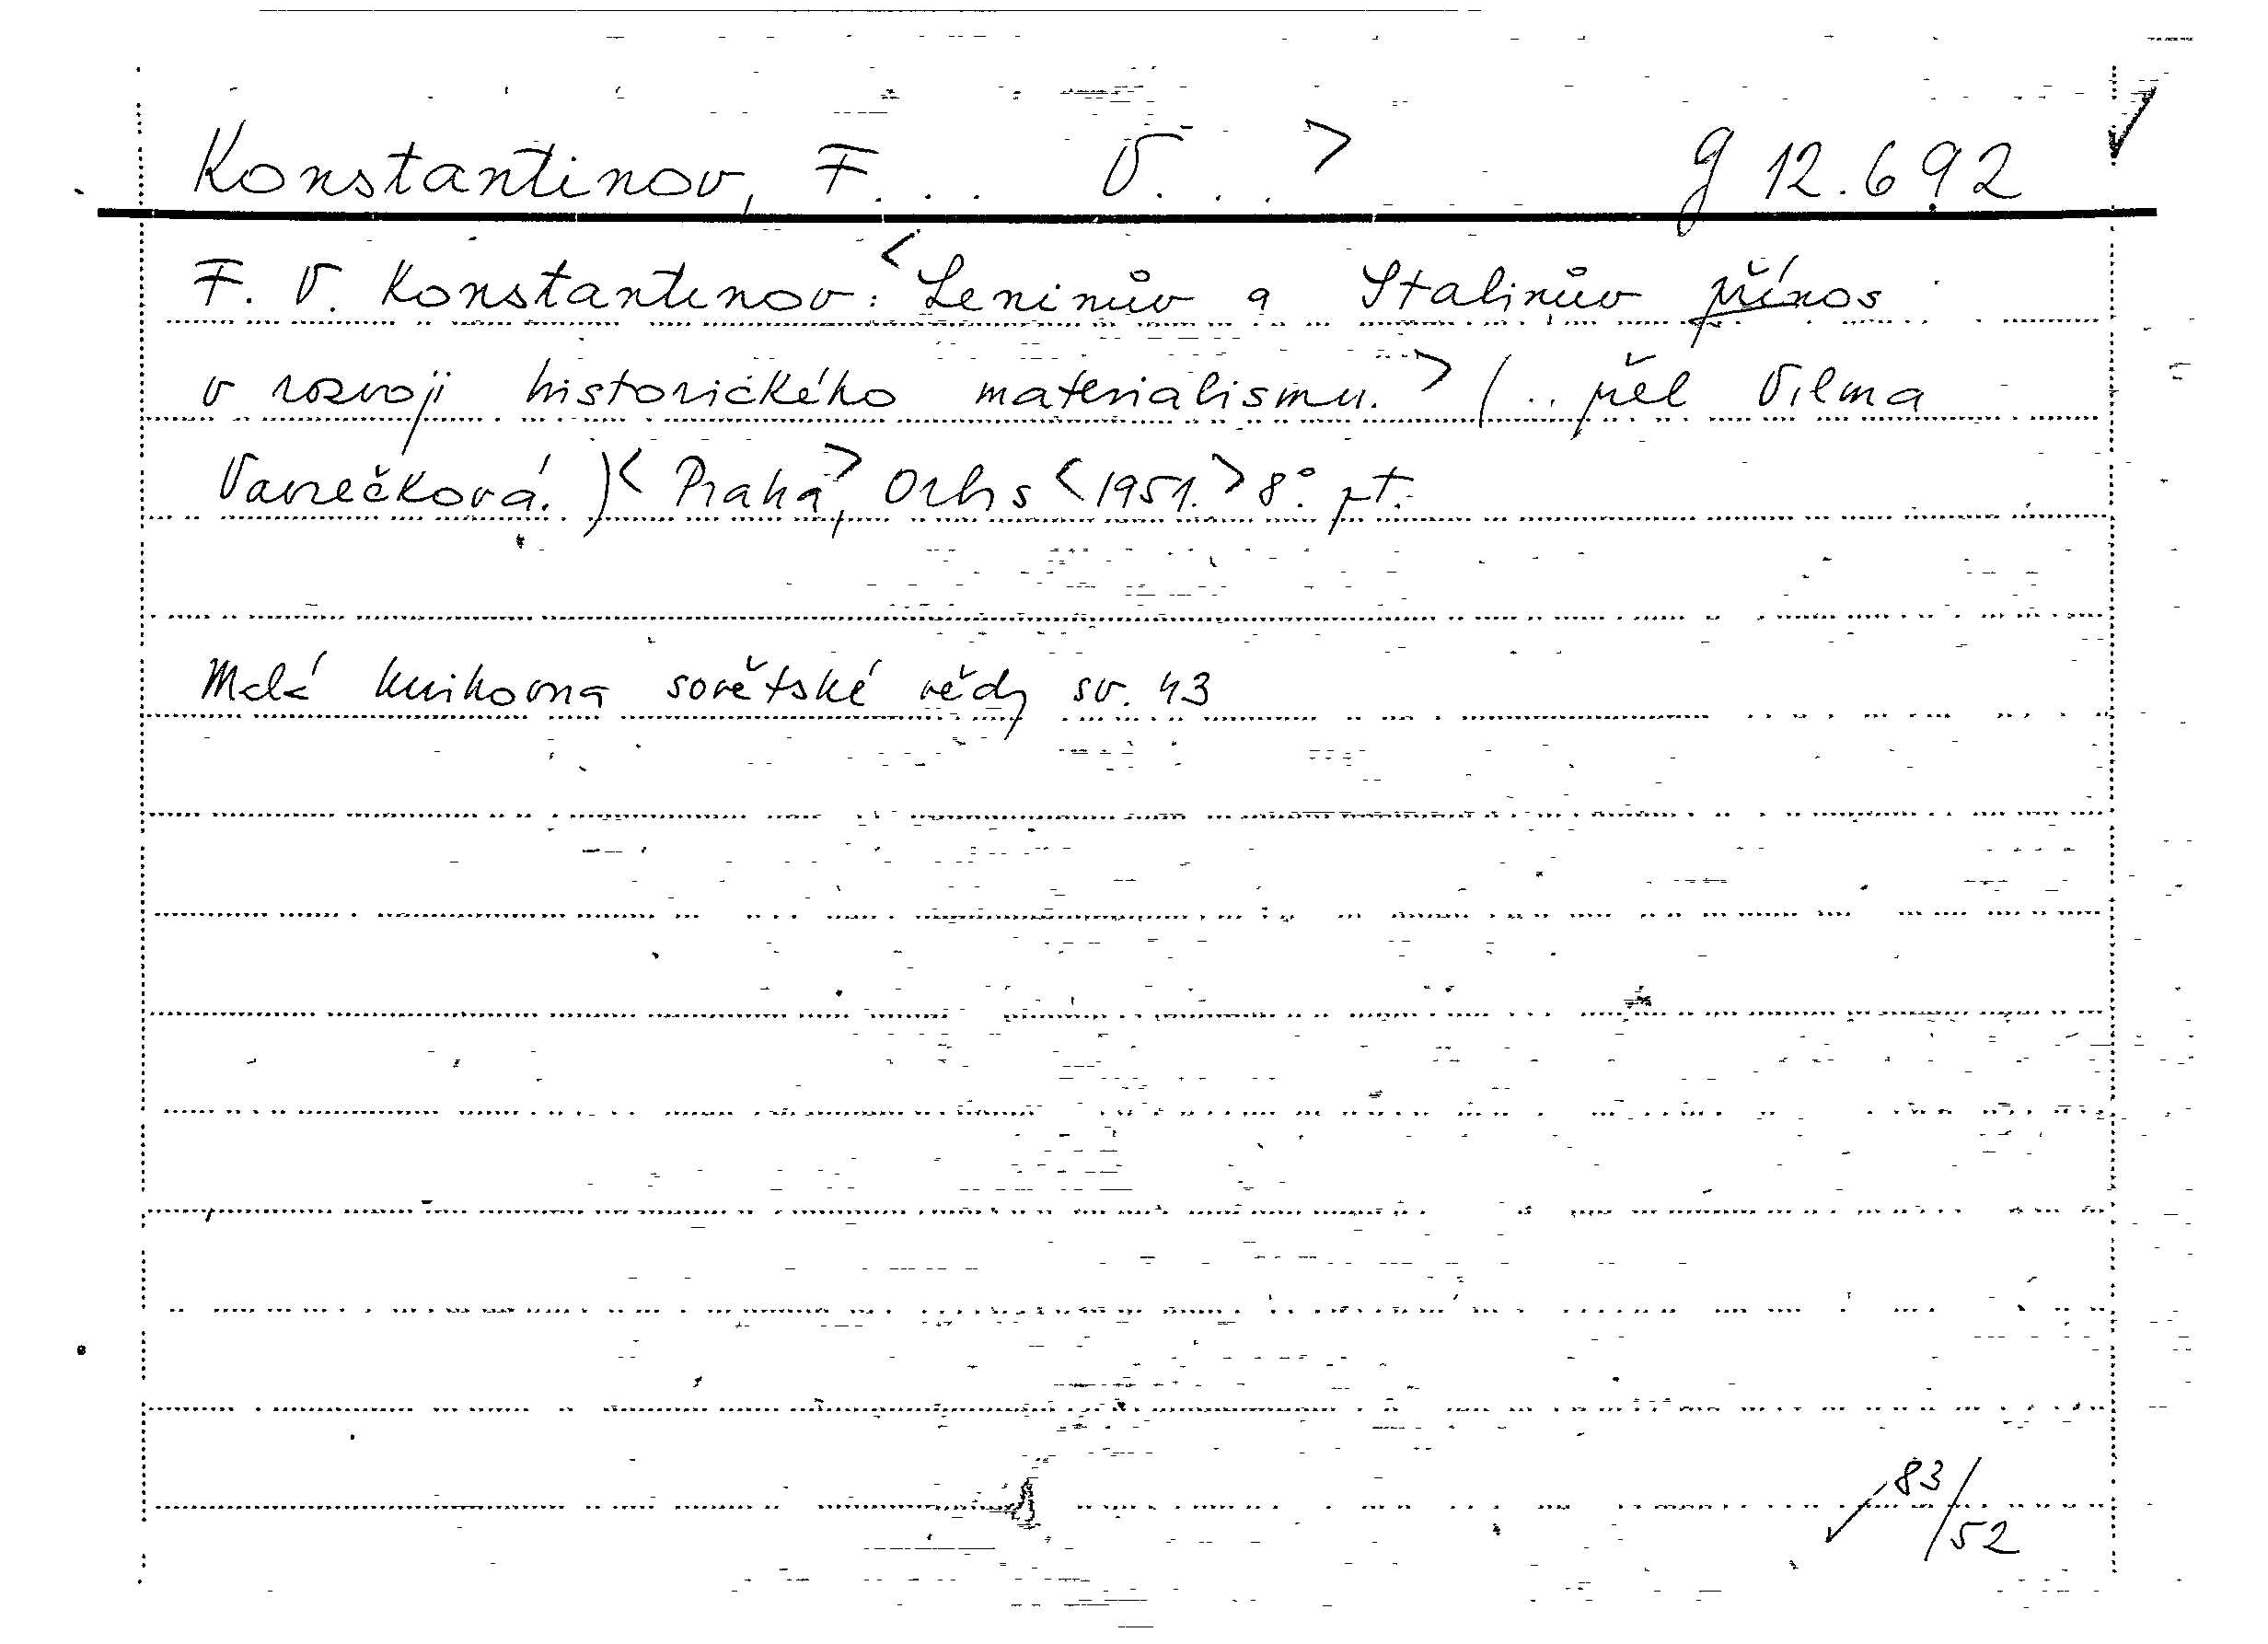 Konstantinov, F... V...> g 12.692
F. V. Konstantinov: <Leninův a Stalinův přínos
v rozvoji historického materialismu.> (.. přel Vilma
Vanečková.) <Praha>, Orbis <1951.> 8°. pt.
Malá knihovna sovětské vědy sv. 43
83/52